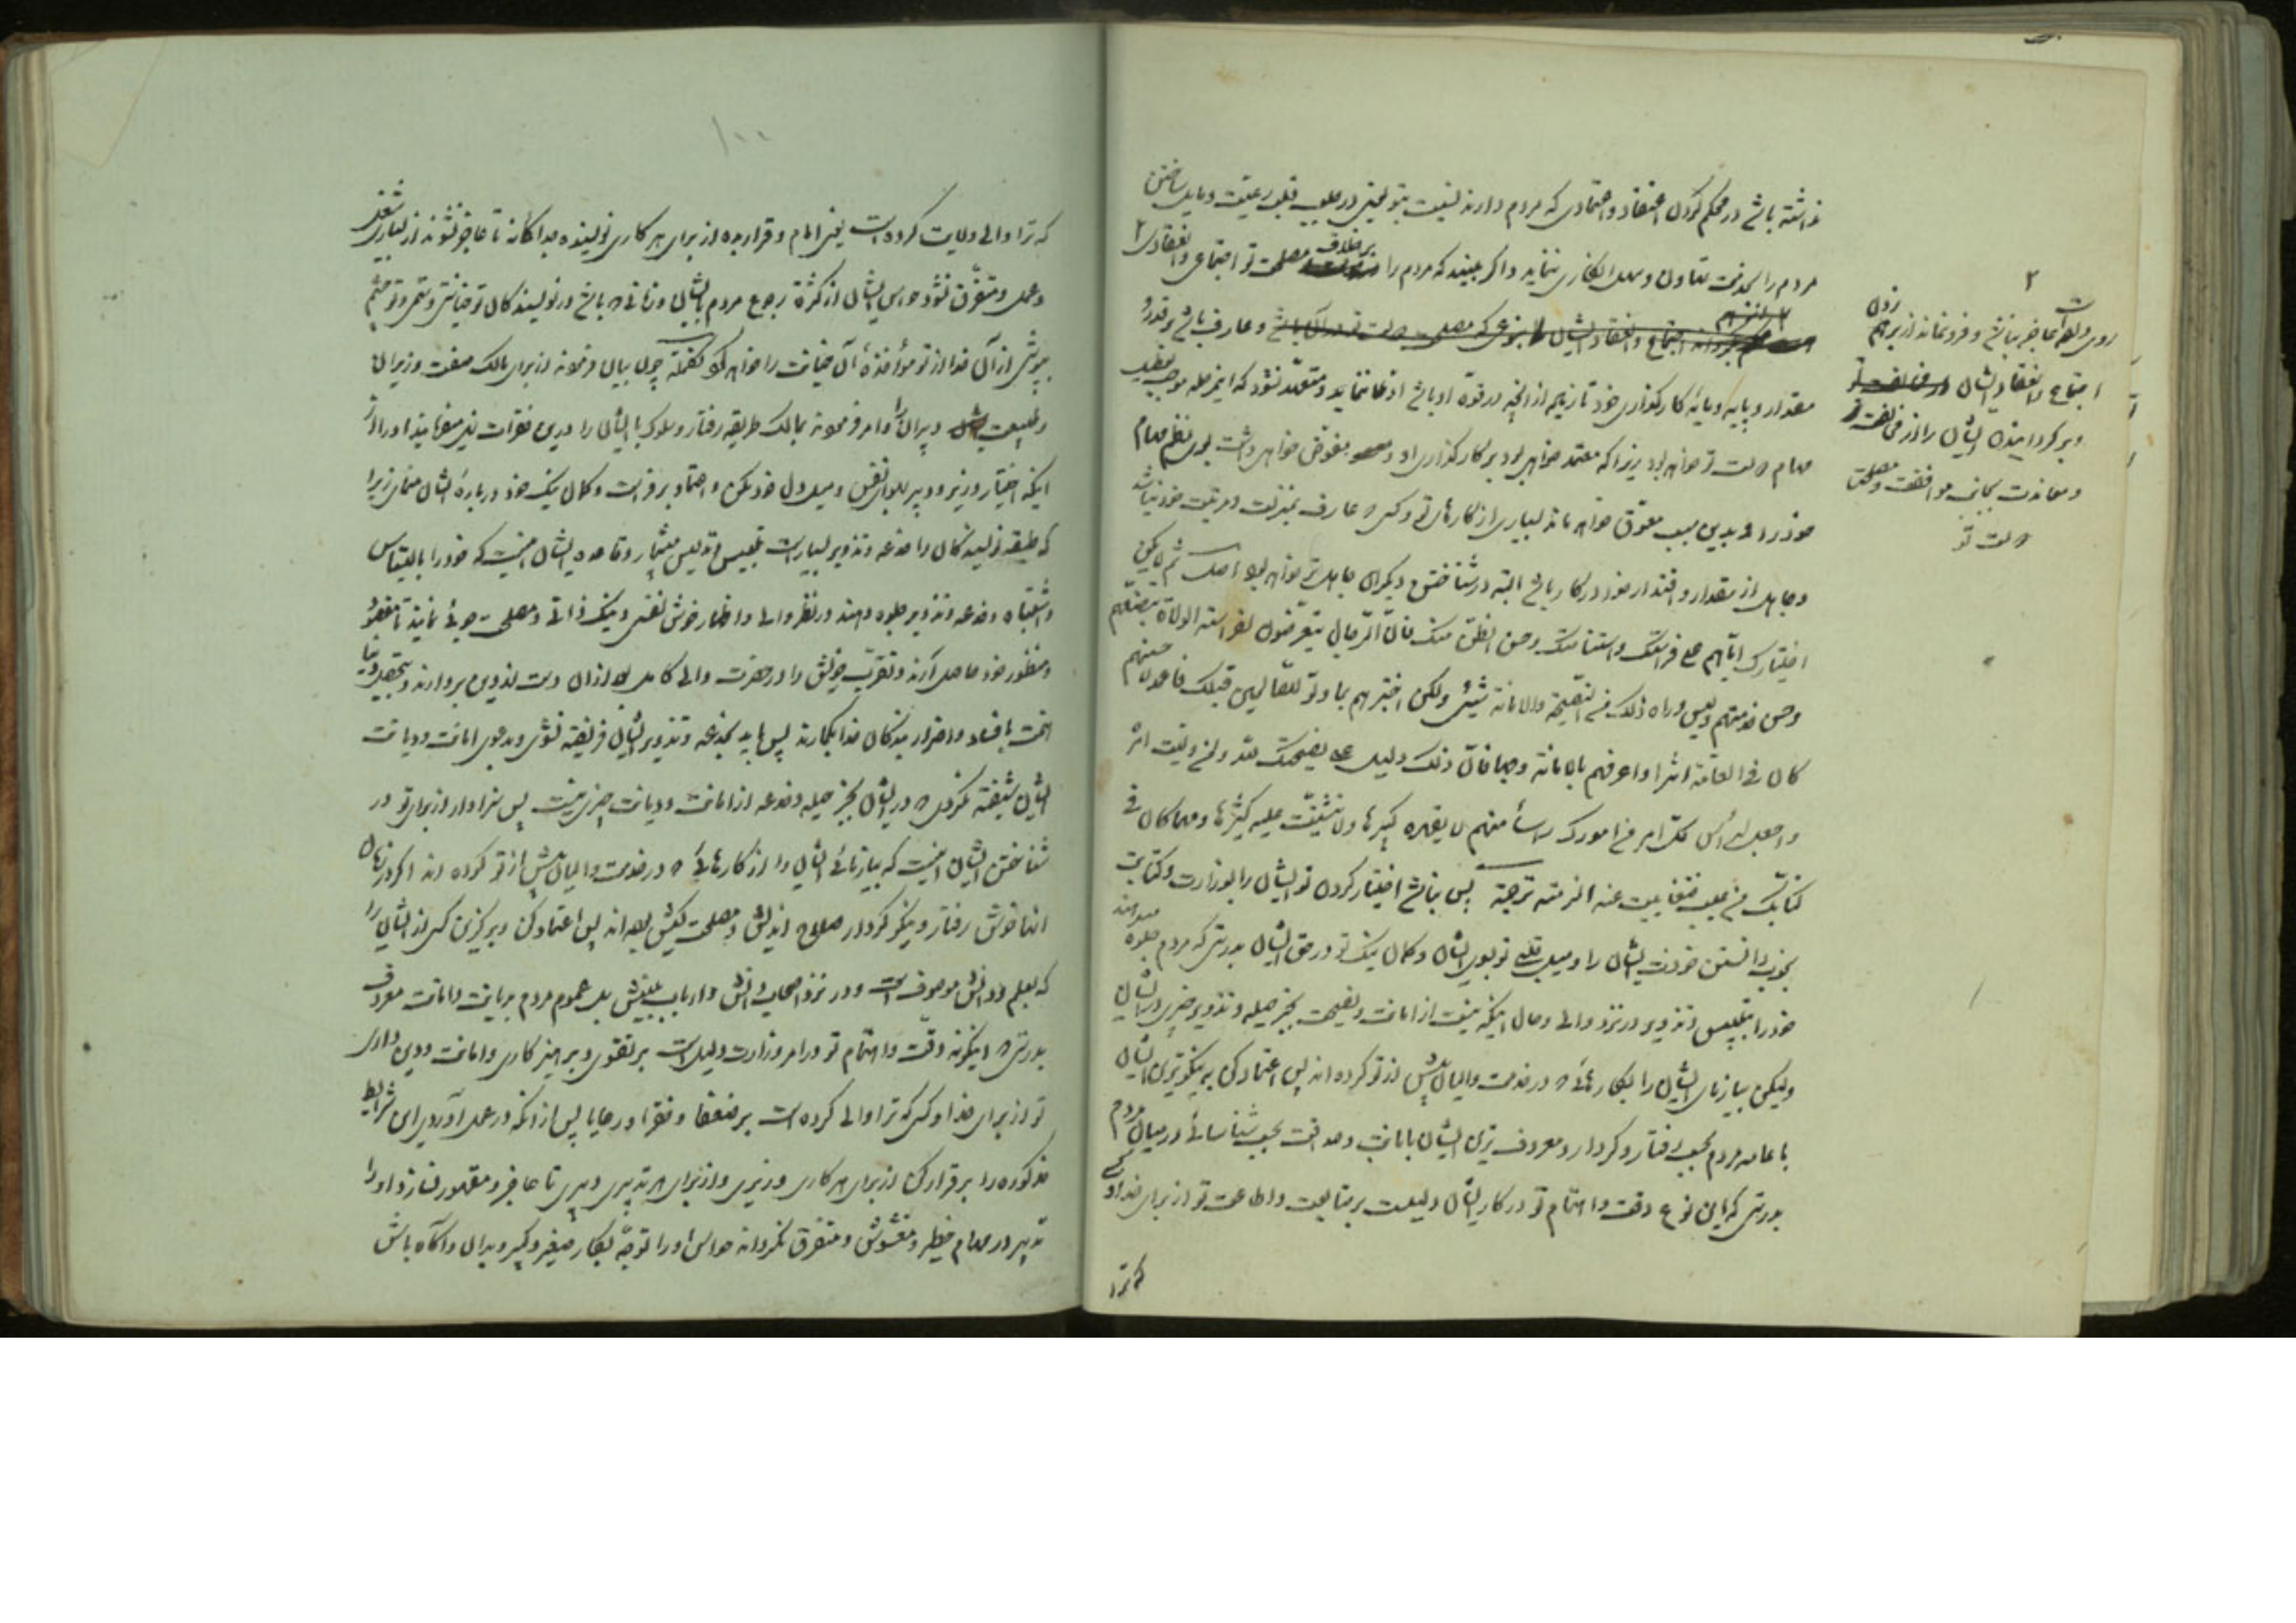 داشته باشی در محکم کردن اعتقاد و اعتمادی که مردم دارند نسبت بتو یعنی در طلب قلب رعیت و مایل ساختن
مردم را بخدمت تهاون و سهل انکاری ننماید و اگر ببیند که مردم را بر خلاف مصلحت تو اجتماعی و انعقادی ۲
اجتماع و انعقاد ایشان بنوعی که مصلحت دولت تو در آن باشد و عارف باشد بر قدر و
مقدار و پایه و مایه کارگذاری خود تا زیاده از آنچه در قوه او باشد ادعا ننماید و متعهد نشود که اینمرحله موجب تعطیل
مهام دولت تو خواهد بود زیرا که معتمد خواهی بود بر کارگذاری او و مفوض خواهی داشت بوی نظم مهام
خود را و بدین سبب معوق خواهد ماند بسیاری از کارهای تو و کسی که عارف بمنزلت و مرتبت خود نباشد
و جاهل از مقدار و اقتدار خود در کار باشد البته در شناختن دیگران جاهل تر خواهد بود اصل ثم لا یکن
اختیارک ایاهم علی فراستک و استنامتک و حسن الظن منک فان الرجال یتعرضون لفراسته الولاة بتصنعهم
و حسن خدمتهم و لیس وراء ذلک من النصیحة و الامانة شیئی ولکن اختبرهم بما ولوا للصالحین قبلک فاعمد لاحسنهم
کان فی العامة اثرا و اعرفهم بالامانة وجها فان ذلک دلیل علی نصیحتک لله و لمن ولیت امره
و اجعل لرأس کل امر من امورک رأسا منهم لا یقهره کبیرها و لا یتشتت علیه کثیرها و مهما کان فی
کتابک من عیب فتغابیت عنه الزمته ترجمة پس نباشد اختیار کردن تو ایشان را بوزارت و کتابت
بخوب دانستن خودت ایشان را و میل قلب تو بسوی ایشان و کمان نیک تو در حق ایشان بدرستی که مردم جلوه میدهند
خود را بتلبیس و تزویر در نزد والی و حال اینکه نیست از امانت و نصیحت بجز حیله و تزویر چیزی در ایشان
ولیکن بیازمای ایشان را بکارهائی که در خدمت والیان پیش از تو کرده اند پس اعتماد کن به نیکوترین ایشان
با عامه مردم بحسب رفتار و کردار و معروف ترین ایشان بامانت و صداقت بحسب شناسائی در میان مردم
بدرستی که این نوع دقت و اهتمام تو در کار ایشان دلیلست بر متابعت و اطاعت تو از برای خدا و کسی
که ترا
۲
اجتماع و انعقاد ایشان
و بر گردانیدن ایشان را از مخالفت
و معاندت بجانب موافقت و مصلحت
دولت تو
۱۰۰
که ترا والی ولایت کرده است یعنی امام و قرار بده از برای هر کاری نویسنده جداگانه تا عاجز نشوند از بسیاری شغل
و عمل و متفرق نشود حواس ایشان از کثرة رجوع مردم بایشان و زمانی که باشد در نویسندکان تو خیانتی و ستمی و تو چشم
بپوشی از آن خدا از تو مؤاخذه آن خیانت را خواهد نمود تکمله چون بیان فرمودند از برای مالک صفت وزیران
و دبیران را امر فرمودند بمالک طریقه رفتار و سلوک با ایشان را در این فقرات
اینکه اختیار وزیر و دبیر بهوای نفس و میل دل خود مکن و اعتماد بر فراست و کمان نیک خود درباره ایشان منمای زیرا
که طبقه نویسندکان را خدعه و تزویر بسیار است تلبیس و تدلیس بیشمار و قاعده ایشان اینست که خود را بالتباس
و اشتباه و خدعه و تزویر جلوه دهند در نظر والی و اظهار خوش نفسی و نیک ذاتی و مصلحت جوئی نمایند تا مقصود
و منظور خود حاصل آرند و تقرب خویش را در حضرت والی کامل بعد از ان دست از دین بردارند و بتحصیل دنیا
همت بافساد و اضرار بندکان خدا بکمارند پس نباید بخدعه و تزویر ایشان فریفته شوی و بدعوی امانت و دیانت
ایشان شیفته کردی که در ایشان بجز حیله و خدعه از امانت و دیانت چیزی نیست پس سزاوار از برای تو در
شناختن ایشان اینست که بیازمائی ایشان را از کارهائی که در خدمت والیان پیش از تو کرده اند اگر در زمان
آنها خوش رفتار و نیکو کردار صلاح اندیش و مصلحت کیش بوده اند پس اعتماد کن و برگزین کسی از ایشان را
که بعلم و دانش موصوف است و در نزد اصحاب دانش و ارباب بینش بل عموم مردم بدیانت و امانت معروف
بدرستی که اینگونه دقت و اهتمام تو در امر وزارت دلیل است بر تقوی و پرهیزکاری و امانت و دین داری
تو از برای خدا و کسی که ترا والی کرده است بر ضعفا و فقرا و رعایا پس از آنکه در عمل آوردی این شرایط
مذکوره را برقرار کن از برای هر کاری وزیری و از برای هر تدبیری دبیری تا عاجز و مقهور نسازد او را
تدبیر در مهام خطیر و مغشوش و متفرق نکرداند حواس او را توجه بکار صغیر و کبیر و بدان و آگاه باش